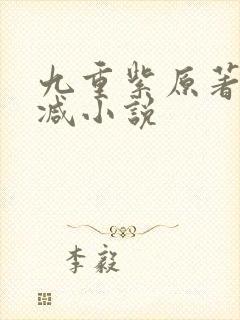 九重紫原著
减小説
李毅